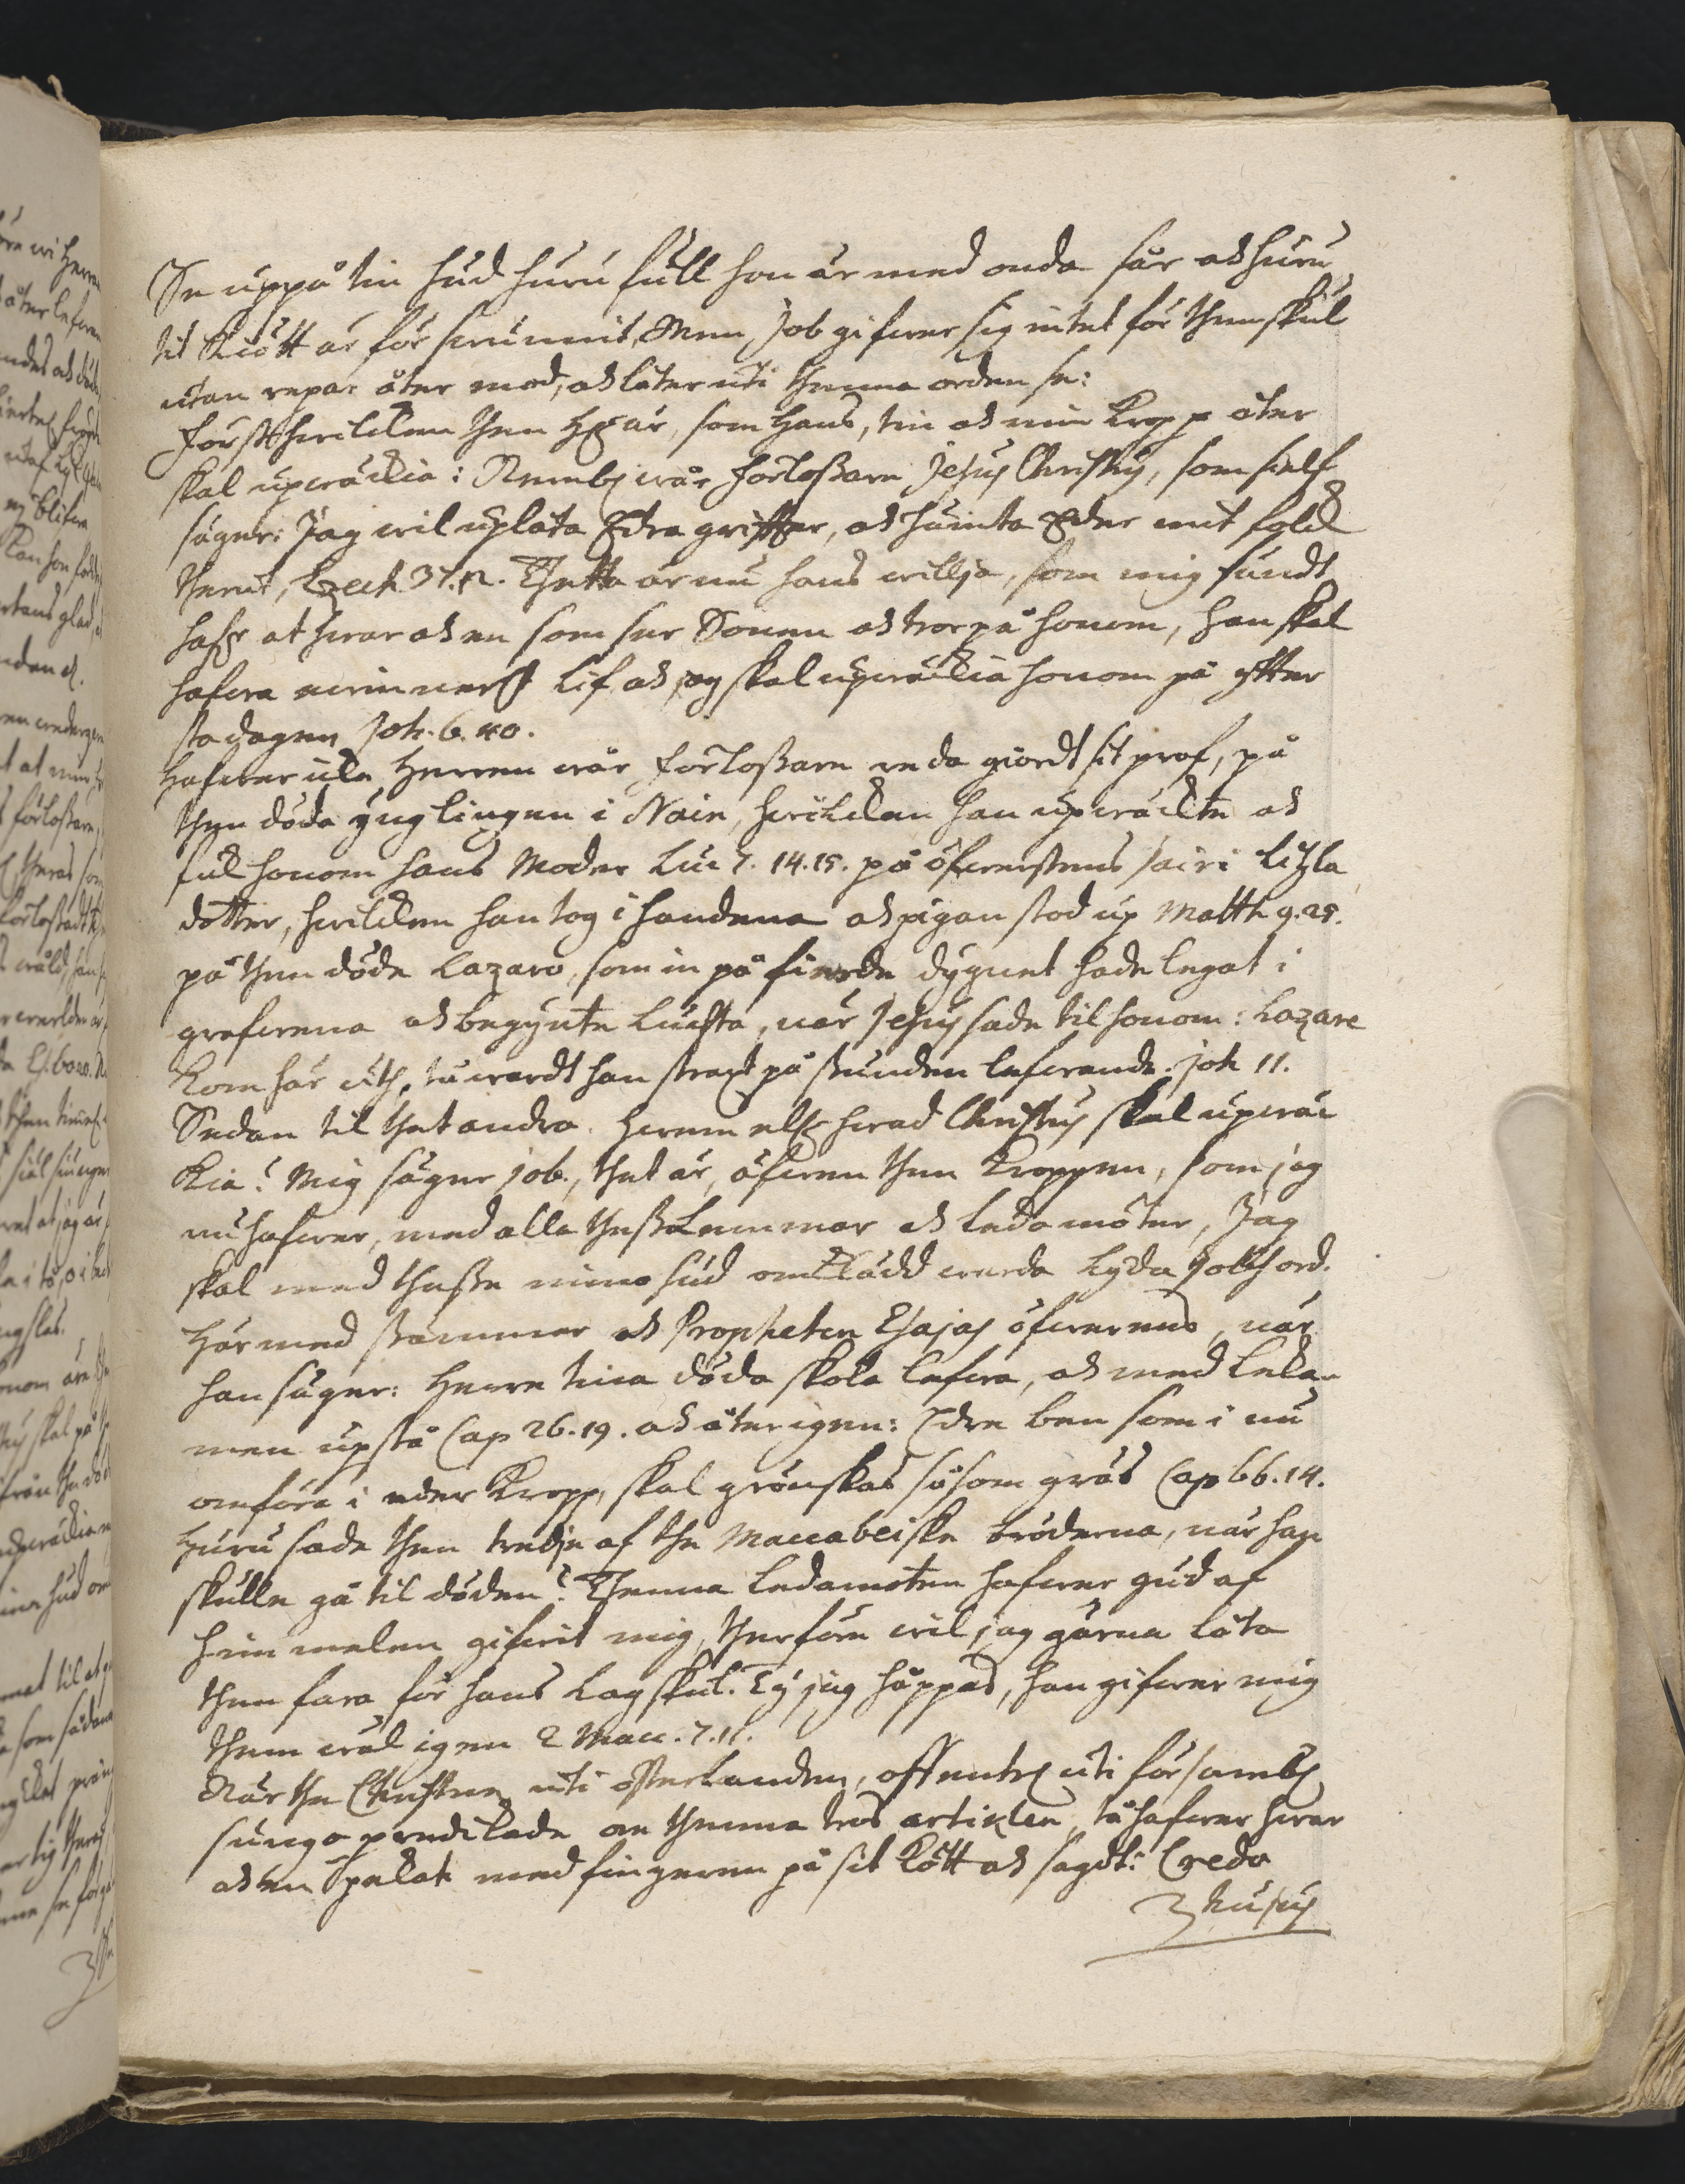 Se uppå tin hud huru full hon är med onda sår och huru
tit Kiött är för swunnit, Men Job gifwer sig intet för then skul
utan repar åter mod, och låter uti thenna orden se:
Först hwilcken then HE är, som hans, tin och min Kropp åter
skal upwäckia: Neml wår förlossare Jesus Christus, som sielf
säger: Jag wil uplåta Edra grifter, och hämta Eder mit folck
therut, Ezech 37. 12. Thetta är nu hans willja, som mig sändt
hafr at hwar och en som ser Sonen och tror på honom, han skal
hafwa ewinnerl Lif och jag skal upwäckia honom på ytter
sta dagen Joh. 6. 40.
Hafwer icke Herren wår förlossare reda giördt sit prof, på
then döda ynglingen i Nain, hwilcken han upwäckte och
fick honom hans Moder Luc 7. 14. 15. på öfwerstens Jairi litzla
dotter, hwilcken han tog i handena och pigan stod up Matth 9. 25.
på then döde Lazaro, som in på fierde dygnet hade legat i
grafwena och begynte Luchta, när Jesus sade til honom: Lazare
Kom här uth, tå wardt han straxt på stunden lefwande. Joh 11.
Sedan til thet andra. Hwem eller hwad Christus skal upwäc
kia? Mig säger job., thet är, öfwen then Kroppen, som jag
nu hafwer, med alla thess Lemmar och ledamöter, Jag
skal med thesse mine hud omklädd warda lyda Jobs ord.
Här med stämmer och Propheten Esajas öfwerens, när
han säger: Herre tina döda skola lefwa, och med leka-
men upstå Cap 26. 19. och åter igen: Edre ben som i nu
omföre i eder Kropp, skal grönskas såsom gräs Cap 66. 14.
Huru sade then tredje af the Maccabeiske bröderna, när han
skulle gå til döden? Thenna ledamoten hafwer gud af
himmelen gifwit mig, therföre wil jag gärna låta
them fara för hans Lag skul. Ty jag håppas, han gifwer mig
them wäl igen 2 Macc. 7. 11.
När the Christne uti österlanden, offentl uti försambl
predikade om thenna tros artiklen, tå hafwer hwar
och en pekat med fingeren på sit Kött och sagdt: Credo
hujus